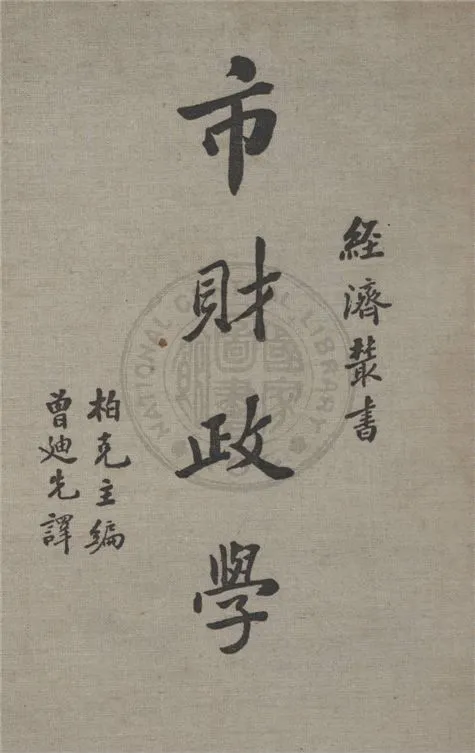 經濟叢書
市財政學
柏克主編
曾迪先譯
NATIONAL CENTRAL LIBRARY
國家圖書館